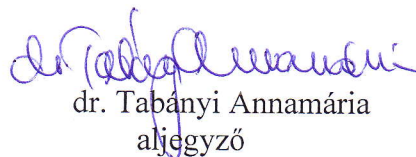 dr Tabányi Annamária
dr. Tabányi Annamária
aljegyző